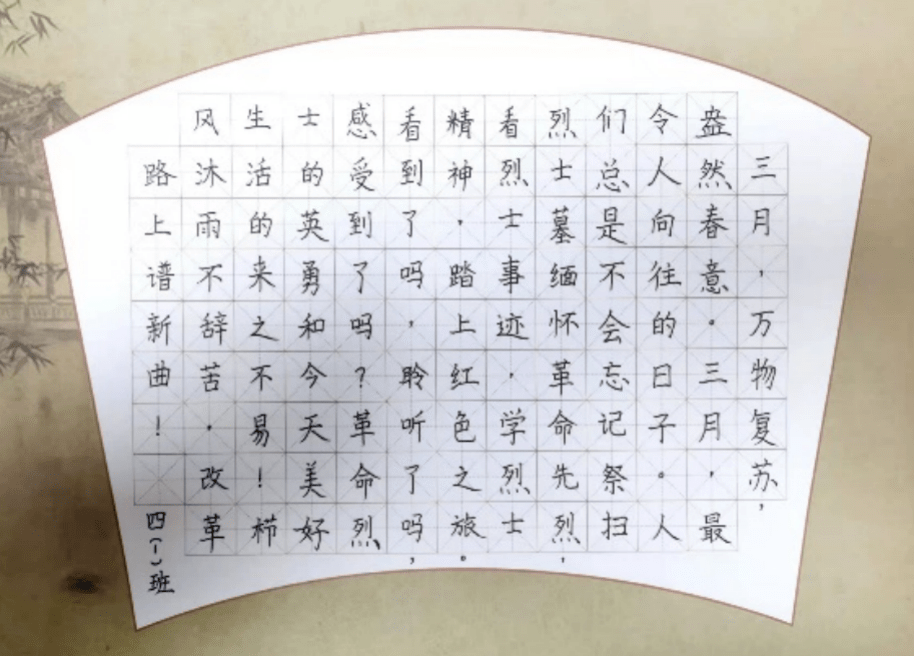 三月，万物复苏，
盎然春意。三月，最
令人向往的日子。人
们总是不会忘记祭扫
烈士墓缅怀革命先烈，
看烈士事迹，学烈士
精神，踏上红色之旅。
看到了吗，聆听了吗，
感受到了吗？革命烈
士的英勇和今天美好
生活的来之不易！栉
风沐雨不辞苦，改革
路上谱新曲！
四(一)班